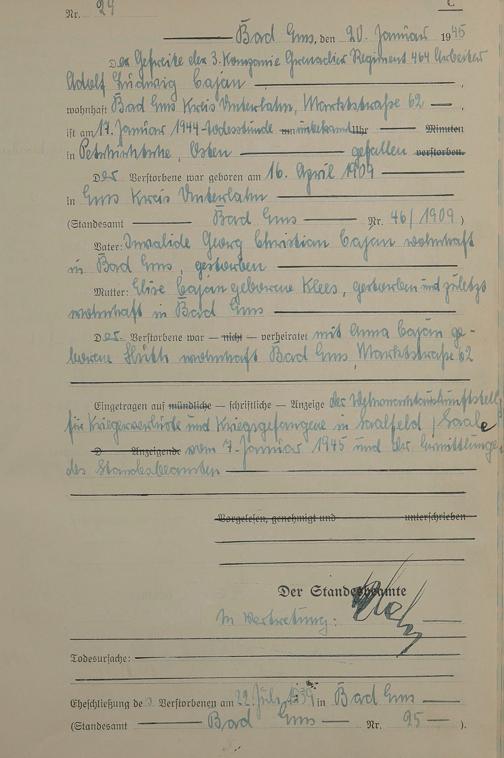 Nr. 29
C
Bad Ems, den 20. Januar 1945
Der Gefreite der 3. Kompanie Grenadier Regiment 464 Arbeiter
Adolf Ludwig Cajan
wohnhaft Bad Ems Kreis Unterlahn, Marktstraße 62
ist am 17. Januar 1944 Todesstunde um unbekannt Uhr Minuten
in Osten gefallen verstorben.
Der Verstorbene war geboren am 16. April 1909
in Ems Kreis Unterlahn
(Standesamt Bad Ems Nr. 46/1909.)
Vater: Invalide Georg Christian Cajan wohnhaft
in Bad Ems, gestorben
Mutter: Elise Cajan geborene Klees, gestorben und zuletzt
wohnhaft in Bad Ems
Der Verstorbene war — nicht — verheiratet mit Anna Cajan ge-
borene wohnhaft Bad Ems, Marktstraße 62
Eingetragen auf mündliche — schriftliche — Anzeige der Wehrmachtauskunftstelle
für Kriegerverluste und Kriegsgefangene in Saalfeld /Saale
D Anzeigende vom 7. Januar 1945 und der Ermittlungen
des Standesbeamten
Vorgelesen, genehmigt und unterschrieben
Der Standesbeamte
In Vertretung:
Todesursache:
Eheschließung des Verstorbenen am 22. Juli in Bad Ems
(Standesamt Bad Ems Nr. 95).